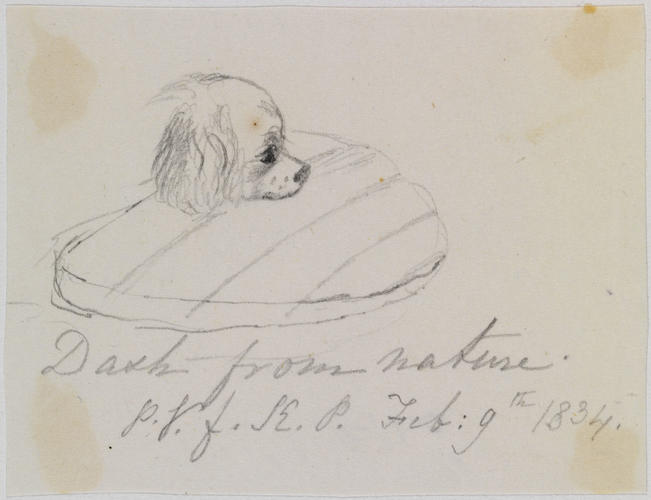 Dash from nature.
P.V. f. K. P. Feb: 9th 1834.